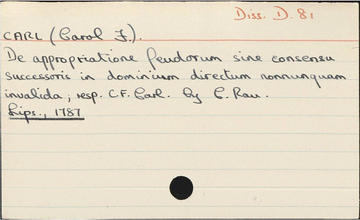 Diss. D. 81
CARL (Carol F.).
De appropriatione feudorum sine consensu
successoris in dominium directum nonnunquam
invalida; resp. C.F. Carl. by C. Rau.
Lips., 1787